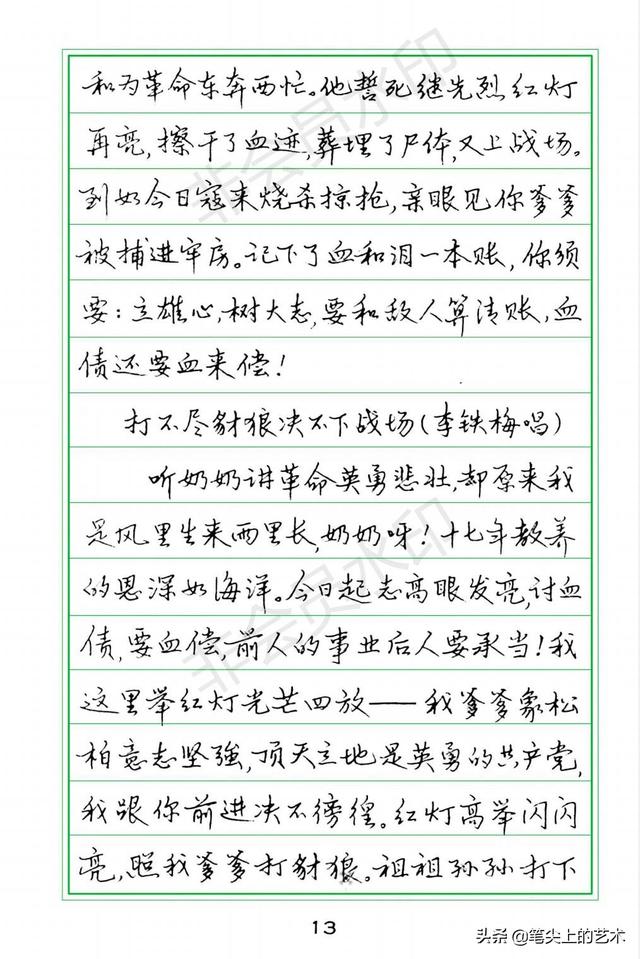 和为革命东奔西忙。他誓死继先烈红灯
再亮,擦干了血迹,葬埋了尸体,又上战场。
到如今日寇来烧杀掠抢,亲眼见你爹爹
被捕进牢房。记下了血和泪一本账,你须
要:立雄心,树大志,要和敌人算清账,血
债还要血来偿!
打不尽豺狼决不下战场(李铁梅唱)
听奶奶讲革命英勇悲壮,却原来我
是风里生来雨里长,奶奶呀!十七年教养
的恩深如海洋。今日起志高眼发亮,讨血
债,要血偿,前人的事业后人要承当!我
这里举红灯光芒四放——我爹爹象松
柏意志坚强,顶天立地是英勇的共产党,
我跟你前进决不彷徨。红灯高举闪闪
亮,照我爹爹打豺狼。祖祖孙孙打下
13
非会员水印
非会员水印
头条 @笔尖上的艺术